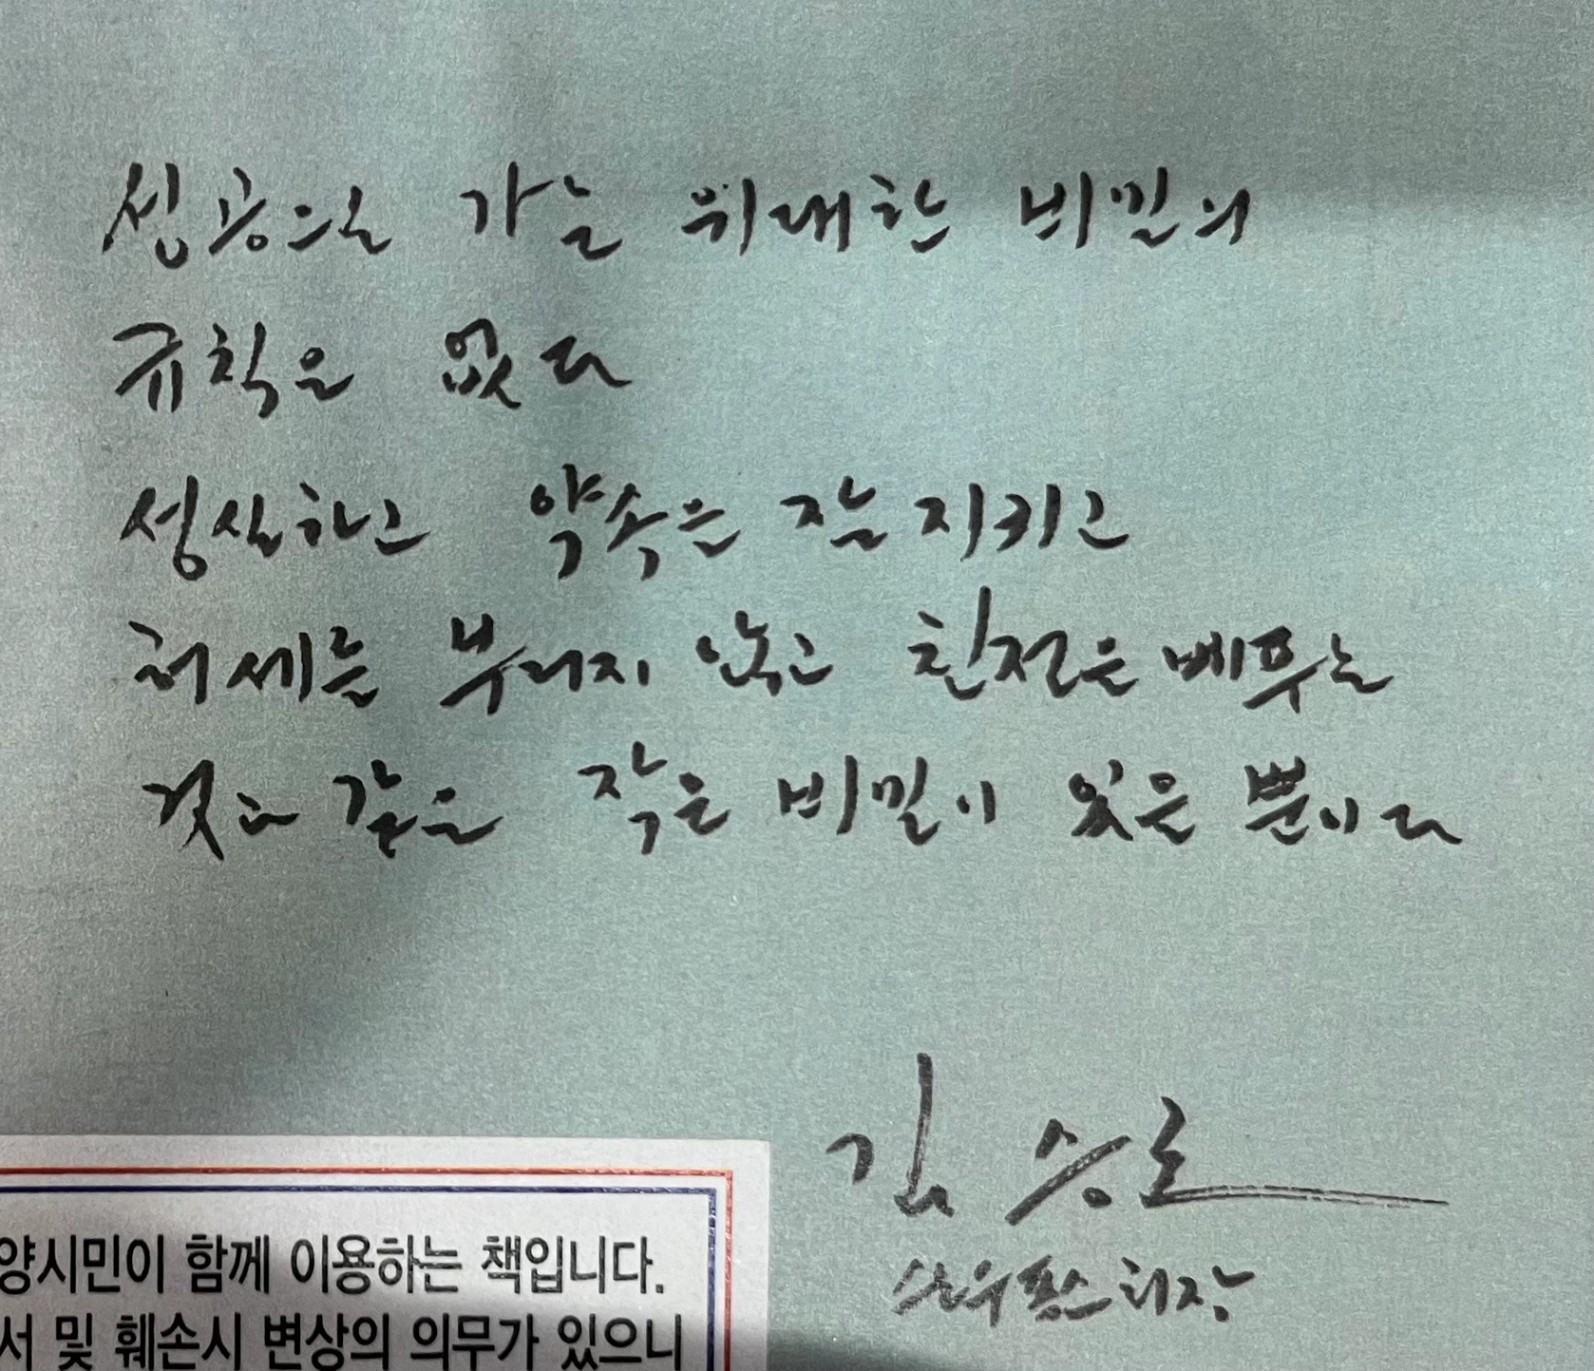 성공으로 가는 위대한 비밀의
규칙은 없다
성실하고 약속은 잘 지키고
허세를 부리지 않고 친절은 베푸는
것과 같은 작은 비밀이 있을 뿐이다
김승호
스노우폭스 회장
양시민이 함께 이용하는 책입니다.
서 및 훼손시 변상의 의무가 있으니